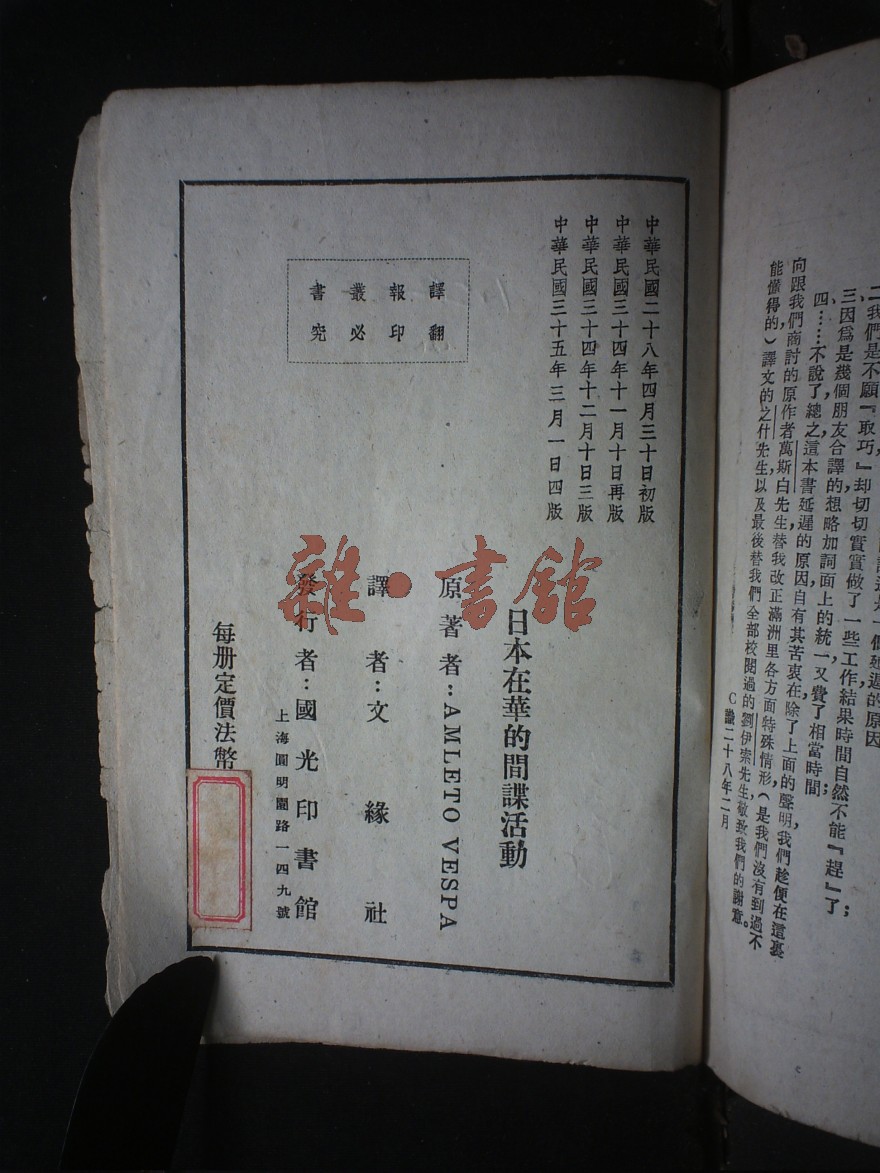 延遲的原因
二、我們是不願『取巧』却切切實實做了一些工作，結果時間自然不能『趕』了；
三、因爲是幾個朋友合譯的，想略加詞面上的統一，又費了相當時間；
四……不說了，總之這本書延遲的原因自有其苦衷在，除了上面的聲明，我們趁便在這裏
向跟我們商討的原作者萬斯白先生，替我改正滿洲里各方面特殊情形（是我們沒有到過不
能懂得的）譯文的之什先生以及最後替我們全部校閱過的劉伊索先生，敬致我們的謝意。
C識二十八年二月
中華民國二十八年四月三十日初版
中華民國三十四年十一月十日再版
中華民國三十四年十二月十日三版
中華民國三十五年三月一日四版
譯報叢書
翻印必究
日本在華的間諜活動
原著者：AMLETO VESPA
譯者：文緣社
發行者：國光印書館
上海圓明園路一四九號
每册定價法幣
雜·書館